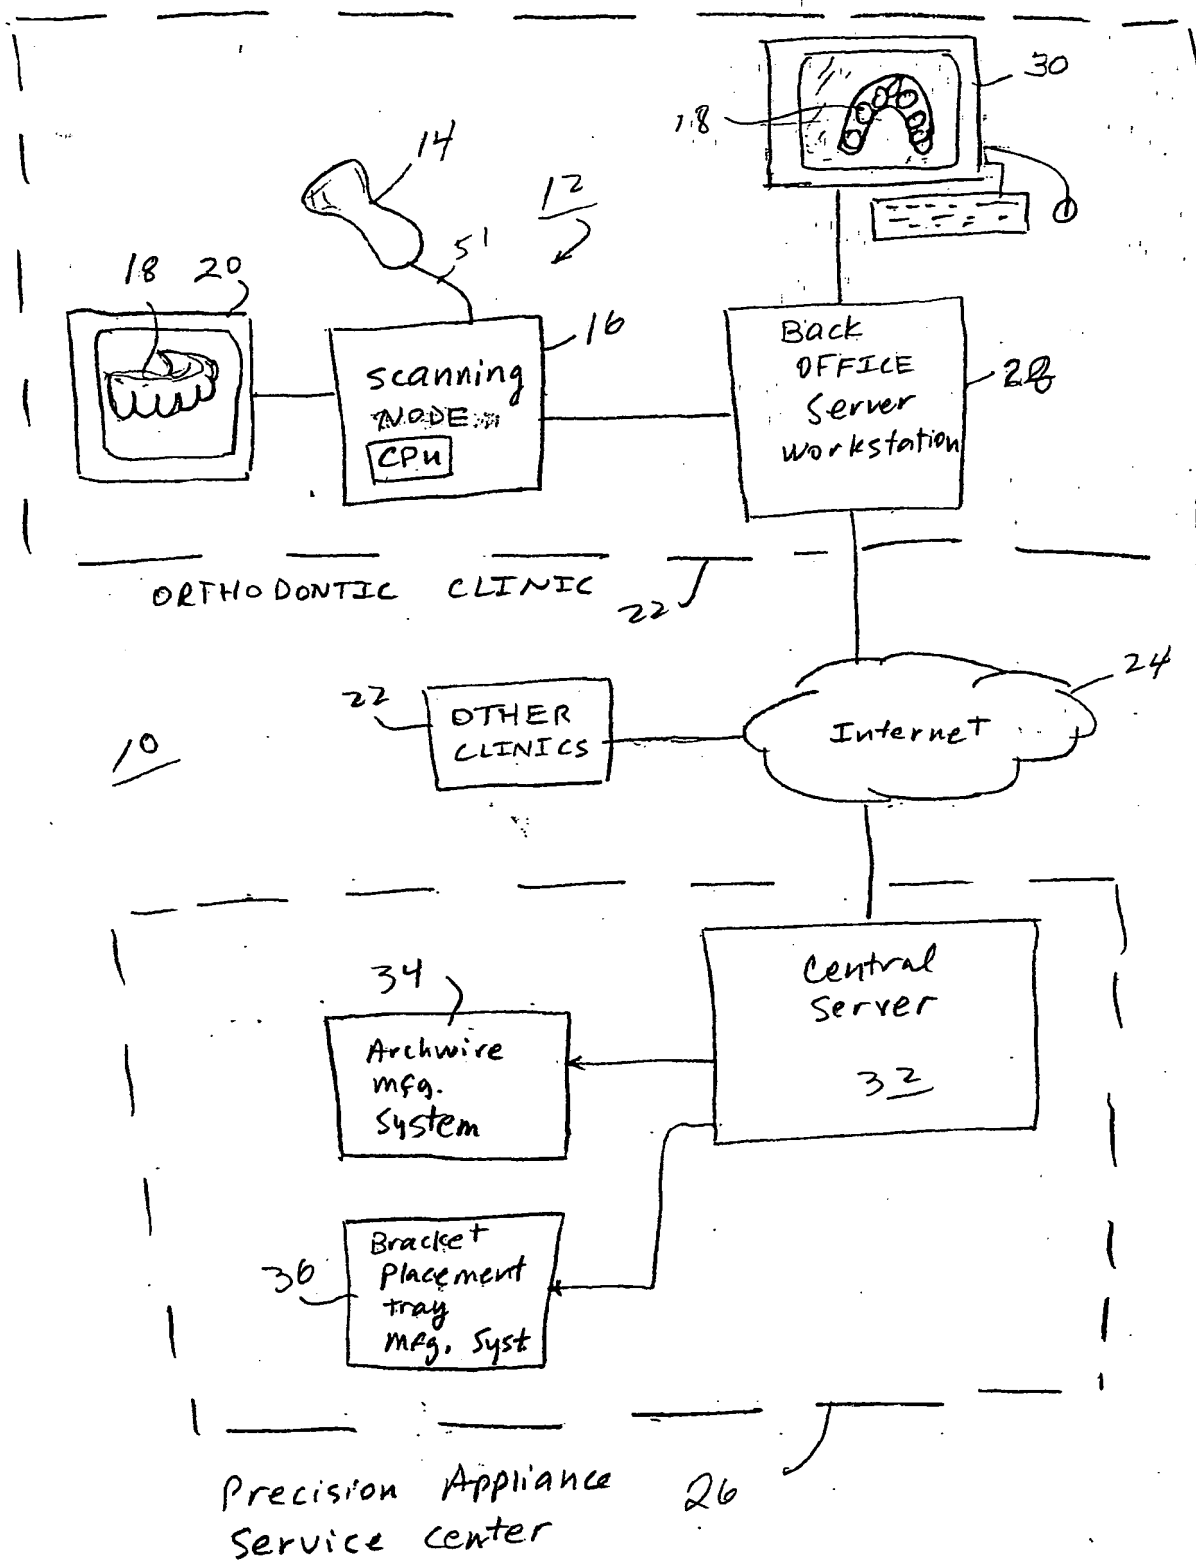 30
18
14
12
51
18
20
16
Scanning
NODE
CPU
Back
OFFICE
Server
Workstation
28
ORTHODONTIC CLINIC
22
24
22
OTHER
CLINICS
Internet
10
34
Central
Server
32
Archwire
mfg.
System
36
Bracket
Placement
tray
mfg. Syst
Precision Appliance
Service center
26